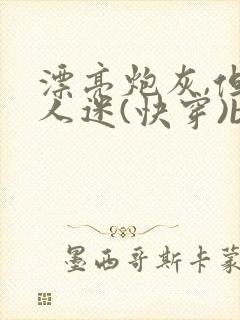 漂亮炮灰,但
人迷(快穿)b
墨西哥斯卡蒙